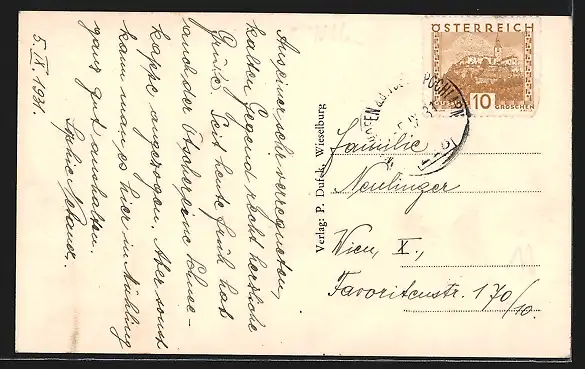 5. IX. 1931.
Aus einer sehr verregneten,
kalten Gegend recht herzliche
Grüße. Seit heute früh hat
auch der Ötscher eine Schnee-
kappe angezogen. Aber sonst
kann man es hier in Mühling
ganz gut aushalten.
Verlag: P. Dufek, Wieselburg
ÖSTERREICH
10
GROSCHEN
PÖCHLARN
Familie
Neulinger
Wien, X.,
Favoritenstr. 170/10.